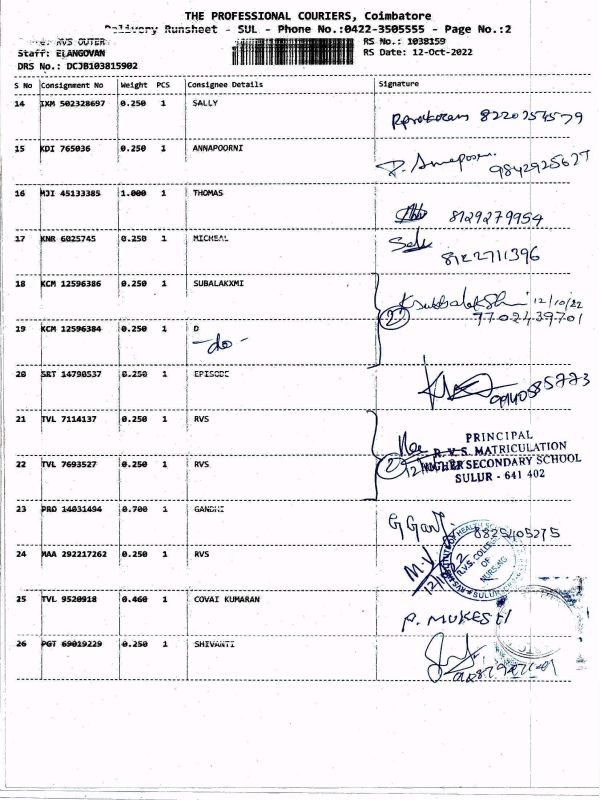 THE PROFESSIONAL COURIERS, Coimbatore
Delivery Runsheet - SUL - Phone No.:0422-3505555 - Page No.:2
Name: RVS OUTER
RS No.: 1038159
Staff: ELANGOVAN
RS Date: 12-Oct-2022
DRS No.: DCJB103815902
S No Consignment No Weight PCS Consignee Details Signature
14 IXM 502328697 0.250 1 SALLY
8220254579
15 KDI 765036 0.250 1 ANNAPOORNI
9842925627
16 MJI 45133385 1.000 1 THOMAS
8129279954
17 KNR 6025745 0.250 1 MICHEAL
8122711396
18 KCM 12596386 0.250 1 SUBALAKXMI
12/10/22
7702439701
19 KCM 12596384 0.250 1 D
-do-
20 SRT 14790537 0.250 1 EPISODE
21 TVL 7114137 0.250 1 RVS
PRINCIPAL
R.V.S. MATRICULATION
HIGHER SECONDARY SCHOOL
SULUR - 641 402
22 TVL 7693527 0.250 1 RVS
23 PRO 14031494 0.700 1 GANDHI
8825405275
24 MAA 292217262 0.250 1 RVS
M.V
R.V.S. COLLEGE
OF
NURSING
SULUR
25 TVL 9520918 0.460 1 COVAI KUMARAN
P. MUKESH
26 PGT 69019229 0.250 1 SHIVANTI